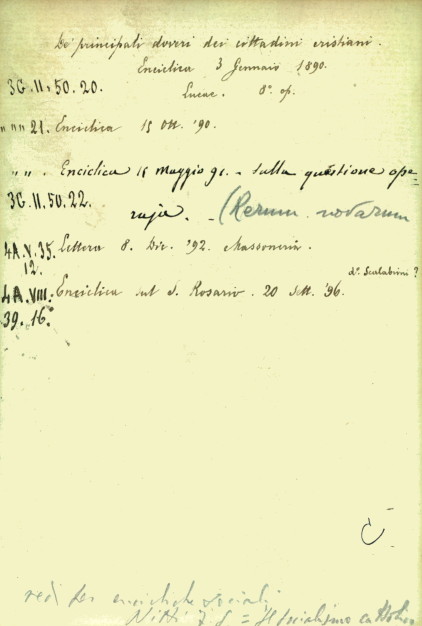 De' principali doveri dei cittadini cristiani.
Enciclica 3 Gennaio 1890.
3G.II.50.20. Lucae. 8° op.
" " " 21. Enciclica 15 Ott. '90.
" " . Enciclica 15 Maggio 91. - sulla quèstione ope=
3G.II.50.22. raja. - (Rerum novarum
4A.V.35. Lettera 8. Dic. '92 Massoneria.
12. di Scalabrini?
4A.VIII. Enciclica sul S. Rosario. 20 Sett. '96.
39.16.
C
vedi per encicliche sociali
Nitti F. S = Il socialismo cattolico